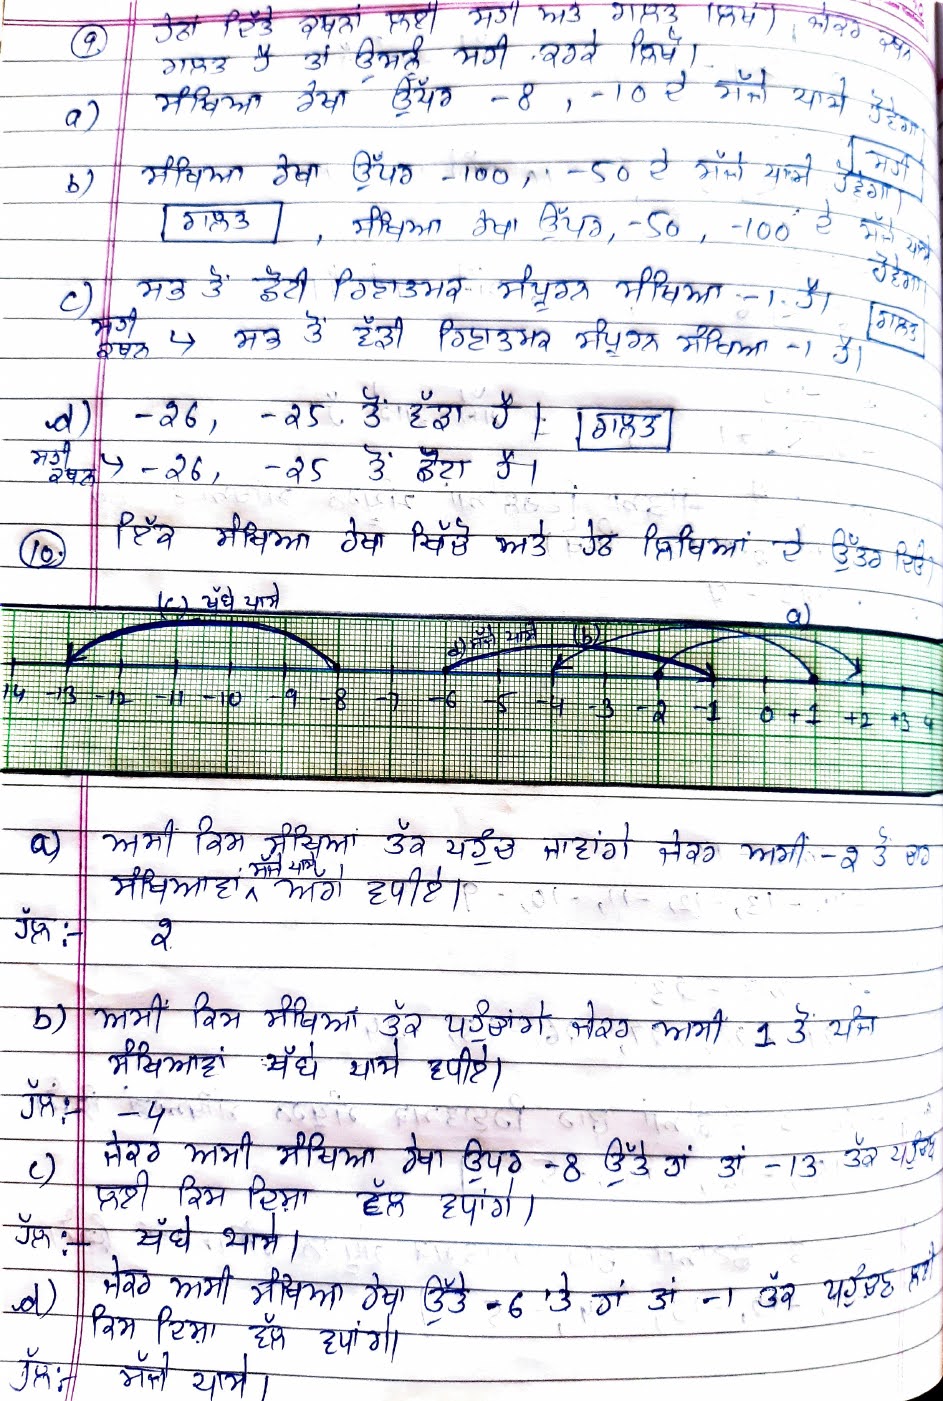 9) ਹੇਠਾਂ ਦਿੱਤੇ ਕਥਨਾਂ ਲਈ ਸਹੀ ਅਤੇ ਗਲਤ ਲਿਖੋ। ਜੇਕਰ ਕਥਨ
ਗਲਤ ਹੈ ਤਾਂ ਉਸਨੂੰ ਸਹੀ ਕਰਕੇ ਲਿਖੋ।
a) ਸੰਖਿਆ ਰੇਖਾ ਉੱਪਰ -8, -10 ਦੇ ਸੱਜੇ ਪਾਸੇ ਹੋਵੇਗਾ
ਸਹੀ
b) ਸੰਖਿਆ ਰੇਖਾ ਉੱਪਰ -100, -50 ਦੇ ਸੱਜੇ ਪਾਸੇ ਹੋਵੇਗਾ।
ਗਲਤ , ਸੰਖਿਆ ਰੇਖਾ ਉੱਪਰ, -50, -100 ਦੇ ਸੱਜੇ ਪਾਸੇ
ਹੋਵੇਗਾ।
c) ਸਭ ਤੋਂ ਛੋਟੀ ਰਿਣਾਤਮਕ ਸੰਪੂਰਨ ਸੰਖਿਆ -1 ਹੈ।
ਗਲਤ
ਸਹੀ ਕਥਨ → ਸਭ ਤੋਂ ਵੱਡੀ ਰਿਣਾਤਮਕ ਸੰਪੂਰਨ ਸੰਖਿਆ -1 ਹੈ।
d) -26, -25 ਤੋਂ ਵੱਡਾ ਹੈ। ਗਲਤ
ਸਹੀ ਕਥਨ → -26, -25 ਤੋਂ ਛੋਟਾ ਹੈ।
10. ਇੱਕ ਸੰਖਿਆ ਰੇਖਾ ਖਿੱਚੋ ਅਤੇ ਹੇਠ ਲਿਖਿਆਂ ਦੇ ਉੱਤਰ ਦਿਓ।
(c) ਖੱਬੇ ਪਾਸੇ d) ਸੱਜੇ ਪਾਸੇ (b) a)
14 -13 -12 -11 -10 -9 -8 -7 -6 -5 -4 -3 -2 -1 0 +1 +2 +3 4
a) ਅਸੀਂ ਕਿਸ ਸੰਖਿਆਂ ਤੱਕ ਪਹੁੰਚ ਜਾਵਾਂਗੇ ਜੇਕਰ ਅਸੀਂ -2 ਤੋਂ ਚਾਰ
ਸੰਖਿਆਵਾਂ ਸੱਜੇ ਪਾਸੇ ਅਗੇ ਵਧੀਏ।
ਹੱਲ:- 2
b) ਅਸੀਂ ਕਿਸ ਸੰਖਿਆਂ ਤੱਕ ਪਹੁੰਚਾਂਗੇ ਜੇਕਰ ਅਸੀਂ 1 ਤੋਂ ਪੰਜ
ਸੰਖਿਆਵਾਂ ਖੱਬੇ ਪਾਸੇ ਵਧੀਏ।
ਹੱਲ:- -4
c) ਜੇਕਰ ਅਸੀਂ ਸੰਖਿਆ ਰੇਖਾ ਉਪਰ -8 ਉੱਤੇ ਹਾਂ ਤਾਂ -13 ਤੱਕ ਪਹੁੰਚਣ
ਲਈ ਕਿਸ ਦਿਸ਼ਾ ਵੱਲ ਵਧਾਂਗੇ।
ਹੱਲ:- ਖੱਬੇ ਪਾਸੇ।
d) ਜੇਕਰ ਅਸੀ ਸੰਖਿਆ ਰੇਖਾ ਉੱਤੇ -6 'ਤੇ ਹਾਂ ਤਾਂ -1 ਤੱਕ ਪਹੁੰਚਣ ਲਈ
ਕਿਸ ਦਿਸ਼ਾ ਵੱਲ ਵਧਾਂਗੇ।
ਹੱਲ:- ਸੱਜੇ ਪਾਸੇ।